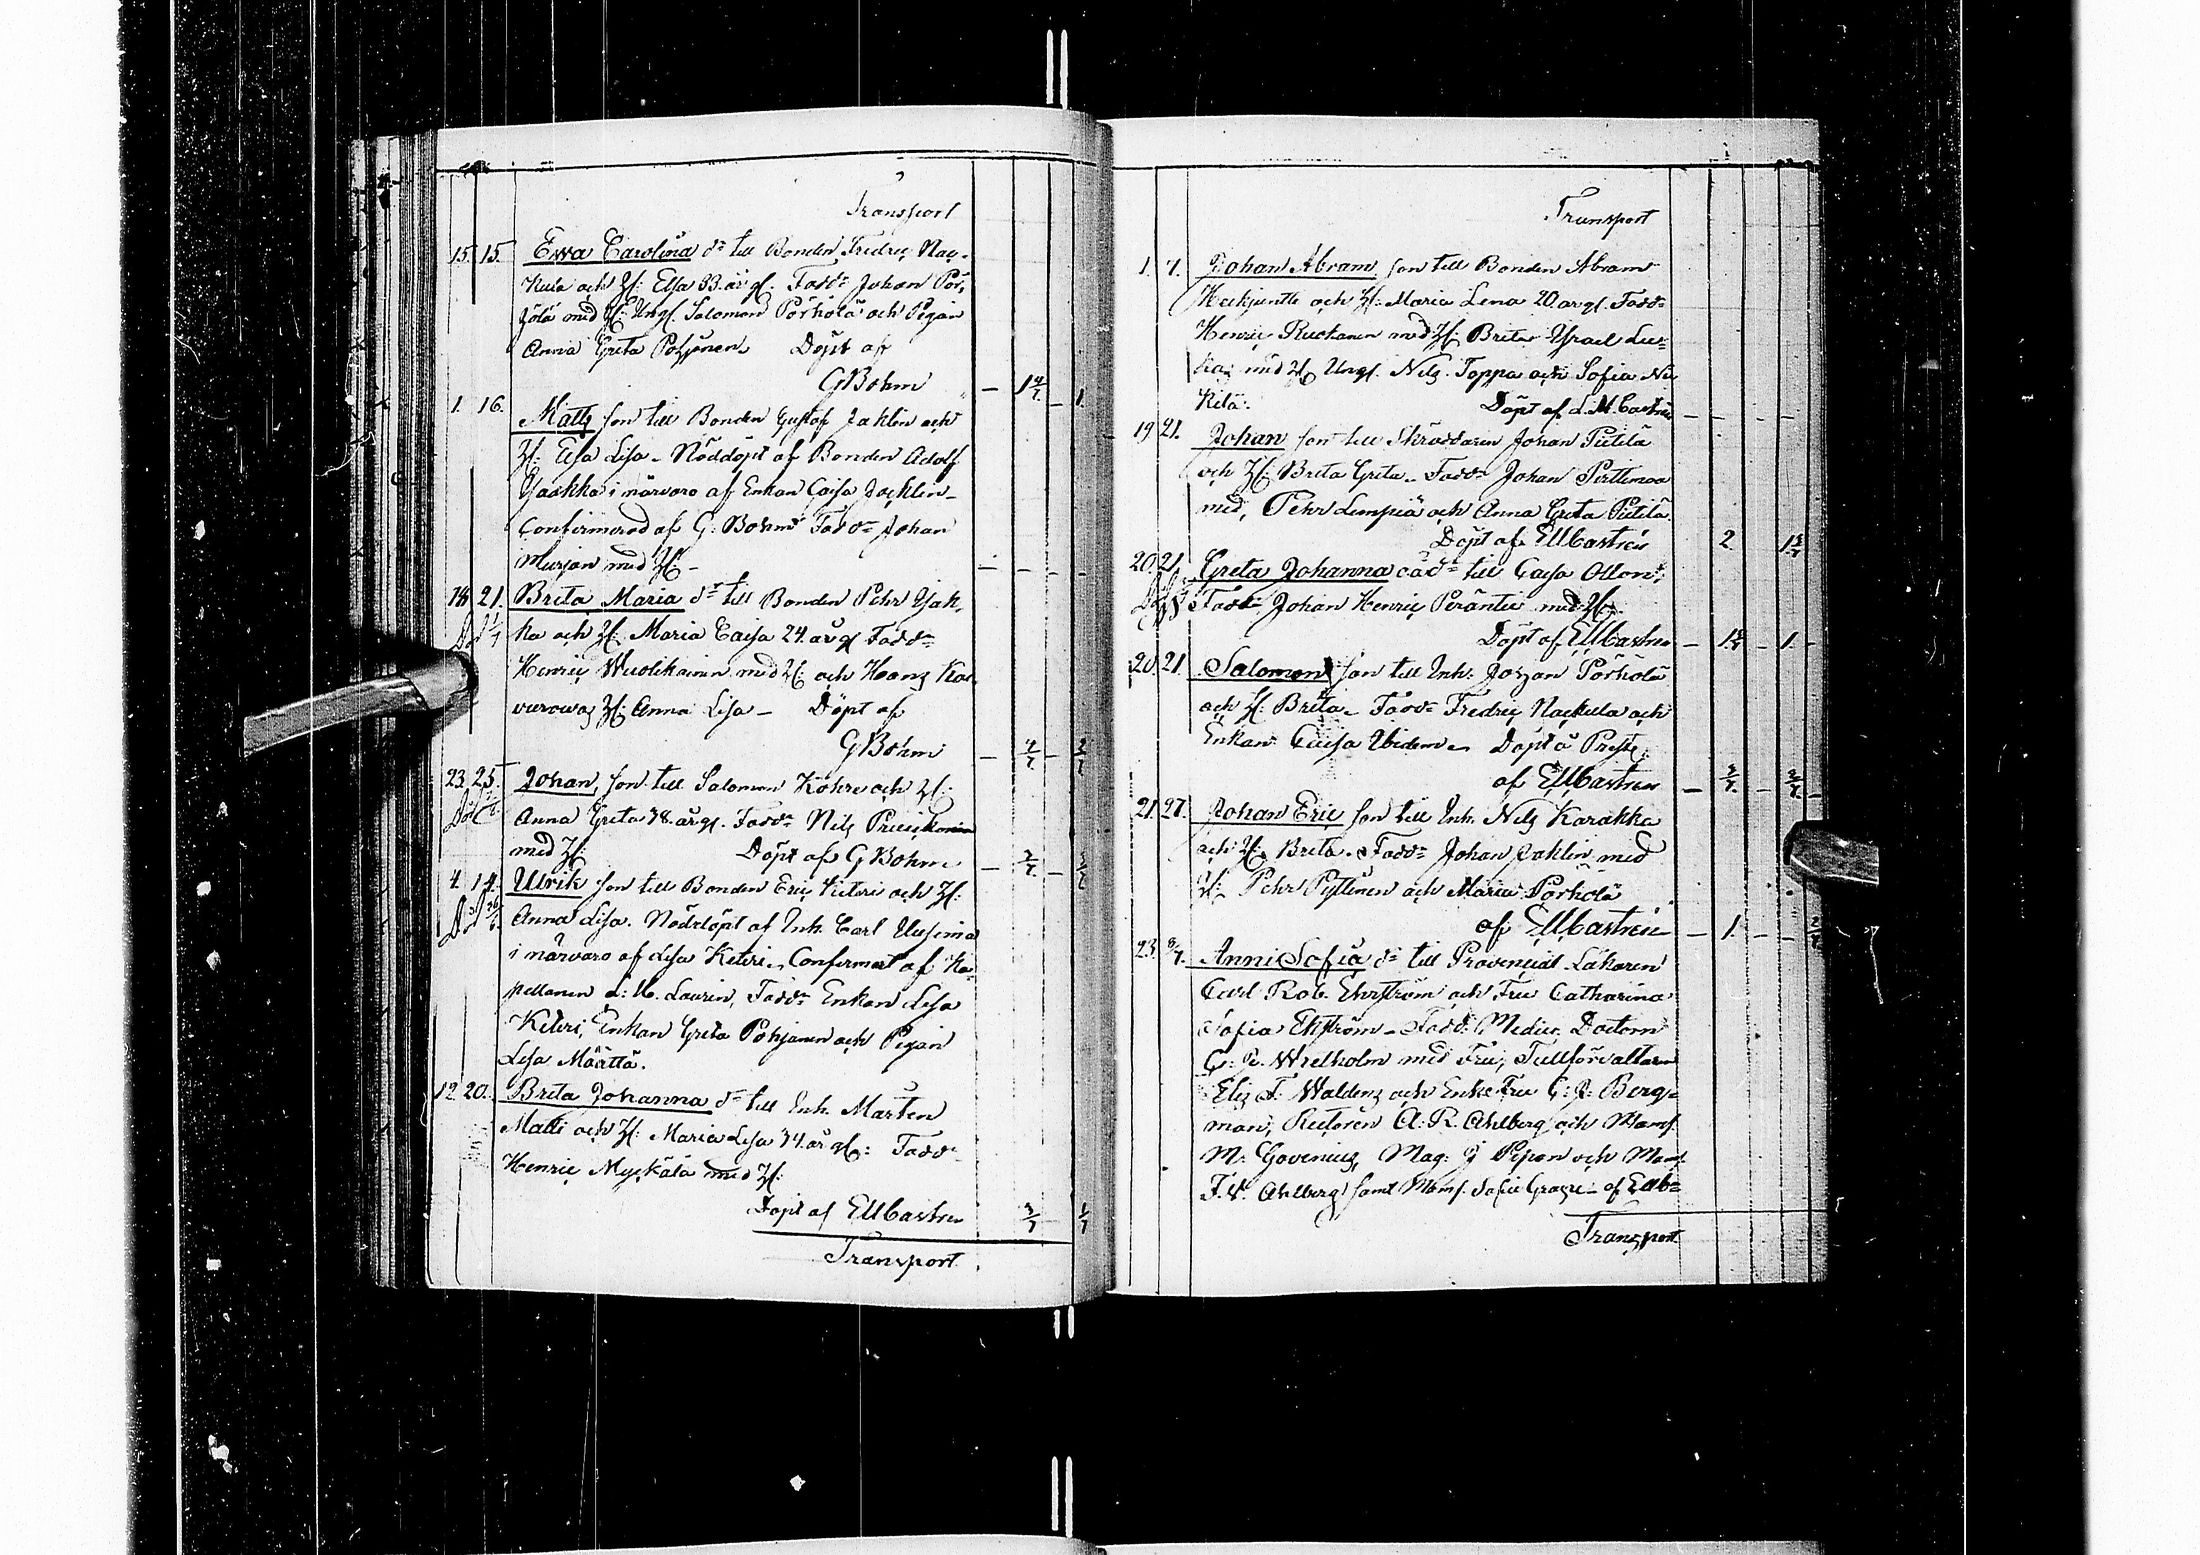 Transport
15. 15. Ewa Carolina dr till Bonden Fredric Nac-
kula och H: Elsa 33. år gl. Fadd: Johan Pör-
hölä med H: Ungl. Salomon Pörhölä och Pigan
Anna Greta Pohjonen Döpt af
GBohm — 1 4/7 — 1.
1. 16. Matts son till Bonden Gustaf Jaklin och
H: Elsa Lisa – Nöddöpt af Bonden Adolf
Yaakka i närvaro af Enkan Caisa Jacklin –
Confirmerad af G: Bohm Fadd: Johan
Murjan med H: –
18 21. Brita Maria dr till Bonden Pehr Yak-
ka och H: Maria Caisa 24. år gl Fadd:
Henric Wuolikainen med H: och Hans
H: Anna Lisa – Döpt af
GBohm — 4/7 — 2/7
23. 25. Johan, son till Salomon Kohre och H:
Anna Greta 38 år gl. Fadd: Nils
med H: Döpt af GBohm — 3/7 —
4. 14. Ulrik son till Bonden Eric Keteri och H:
Anna Lisa. Nöddöpt af Inh. Carl Uusimaa
i närvaro af Lisa Keteri – Confirmerat af Ka-
pellanen L: U. Laurin, Fadd: Enkan Lisa
Keteri, Enkan Greta Pohjanen och Pigan
Lisa Määttä.
12. 20. Brita Johanna dr till Inh. Mårten
Matti och H: Maria Lisa 34. år gl: Fadd:
Henric Myckälä med H:
Döpt af EUCastren 3/7 1/7
Transport
Transport
1. 7. Johan Abram son till Bonden Abram
och H: Maria Lena 20 år gl. Fadd:
Henric Ruohanen med H: Brita Ysrael Luu-
med H: Ungl. Nils Toppa och Sofia
Döpt af L. M. Castrén
19 21. Johan son till Skräddaren Johan Pietilä
och H: Brita Greta – Fadd: Johan Perttunen
med, Pehr Lumpiä och Anna Greta Pietilä
Döpt af EUCastrén 2.
20. 21. Greta Johanna oä dr till Caisa
Fadd: Johan Henric Peräntie med H:
Döpt af EUCastren — — 1. —
20. 21. Salomon son till Inh. Johan Pörhölä
och H: Brita – Fadd: Fredric Nackula och
Enkan Caisa Ibidem – Döpt å Prestg:
af EUCastren — 3/7 — 3/7 —
21. 27. Johan Eric son till Inh. Nils Karakka
och H: Brita – Fadd: Johan Jaklin med
H: Pehr Pyttinen och Maria Pörhölä
af EUCastrén — 1. — —
23. 8/7. Anni Sofia dr till Provincial-Läkaren
Carl Rob. Ehrström och Fru Catharina
Sofia Ekström – Fadd: Medicc. Doctorn
C. J. Wrelholm med Fru, Tullförvaltaren
Elis F. Waldens och Enke Fru C: J: Berg-
man, Rectoren A. R. Ahlberg och Mams.
M: Govenius, Mag: J Pipon och Mams.
F. V. Ahlberg samt Mams. Sofie – af EUC–
Transport